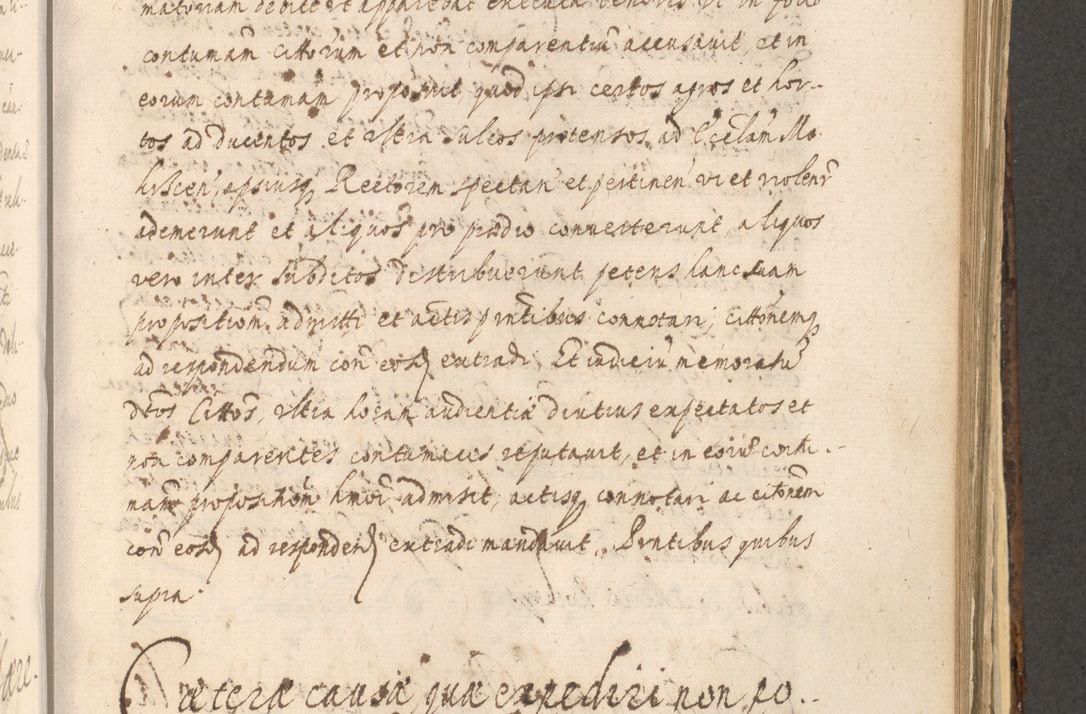 matoriam debite et apparebat executa tenoris ut in folio
contumam cittorum et non comparentiũ accusavit, et in
eorum contumam proposuit quod ipsi certos agros et hor-
tos ad ducentos et ultra sulcos protensos ad Ecclam Mo
ipsiusq Rectorem spectan et pertinen vi et violenr
ademerunt et aliquos pro prædio converterunt, aliquos
vero inter subditos distribuerunt petens hanc suam
proposition admitti et actis pntibus connotari, cittonemq
ad respondendum con eosd extradi. Et iudiciũ memoratũ
dtos Cittos, ultra horam audientiæ diutius expectatos et
non comparentes contumaces reputavit, et in eorũ contu-
mam propositionem hmoi admisit, actisq connotari ac citonem
con eosd ad responden extradi mandavit. Pntibus quibus
supra.
Cæteræ causæ quæ expediri non po-